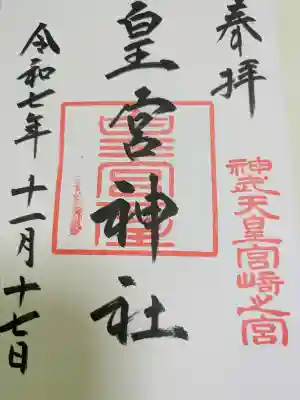 奉拝
神武天皇宮崎之宮
皇宮神社
令和七年十一月十七日